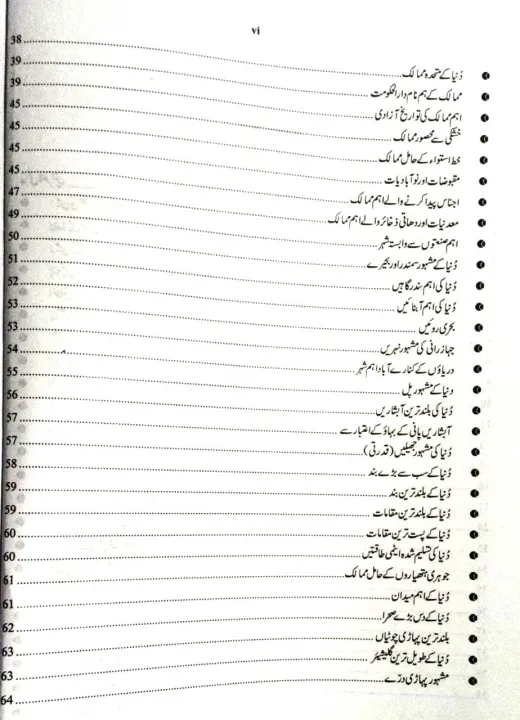 vi
دُنیا کے متحدہ ممالک ........ 38
ممالک کے ہم نام دارالحکومت ........ 39
اہم ممالک کی تواریخ آزادی ........ 39
خشکی سے محصور ممالک ........ 45
خط استواء کے حامل ممالک ........ 45
مقبوضات اور نوآبادیات ........ 45
اجناس پیدا کرنے والے اہم ممالک ........ 45
معدنیات اور دھاتی ذخائر والے اہم ممالک ........ 47
اہم صنعتوں سے وابستہ شہر ........ 49
دُنیا کے مشہور سمندر اور بحیرے ........ 50
دُنیا کی اہم بندرگاہیں ........ 51
دُنیا کی اہم آبنائیں ........ 52
بحری روئیں ........ 53
جہاز رانی کی مشہور نہریں ........ 53
دریاؤں کے کنارے آباد اہم شہر ........ 54
دنیا کے مشہور پل ........ 55
دُنیا کی بلند ترین آبشاریں ........ 56
آبشاریں پانی کے بہاؤ کے اعتبار سے ........ 57
دُنیا کی مشہور جھیلیں (قدرتی) ........ 57
دُنیا کے سب سے بڑے بند ........ 58
دُنیا کے بلند ترین بند ........ 59
دُنیا کے بلند ترین مقامات ........ 59
دُنیا کے پست ترین مقامات ........ 60
دُنیا کی تسلیم شدہ ایٹمی طاقتیں ........ 60
جوہری ہتھیاروں کے حامل ممالک ........ 61
دُنیا کے اہم میدان ........ 61
دُنیا کے دس بڑے صحرا ........ 62
بلند ترین پہاڑی چوٹیاں ........ 63
دُنیا کے طویل ترین گلیشیئر ........ 63
مشہور پہاڑی درے ........ 64